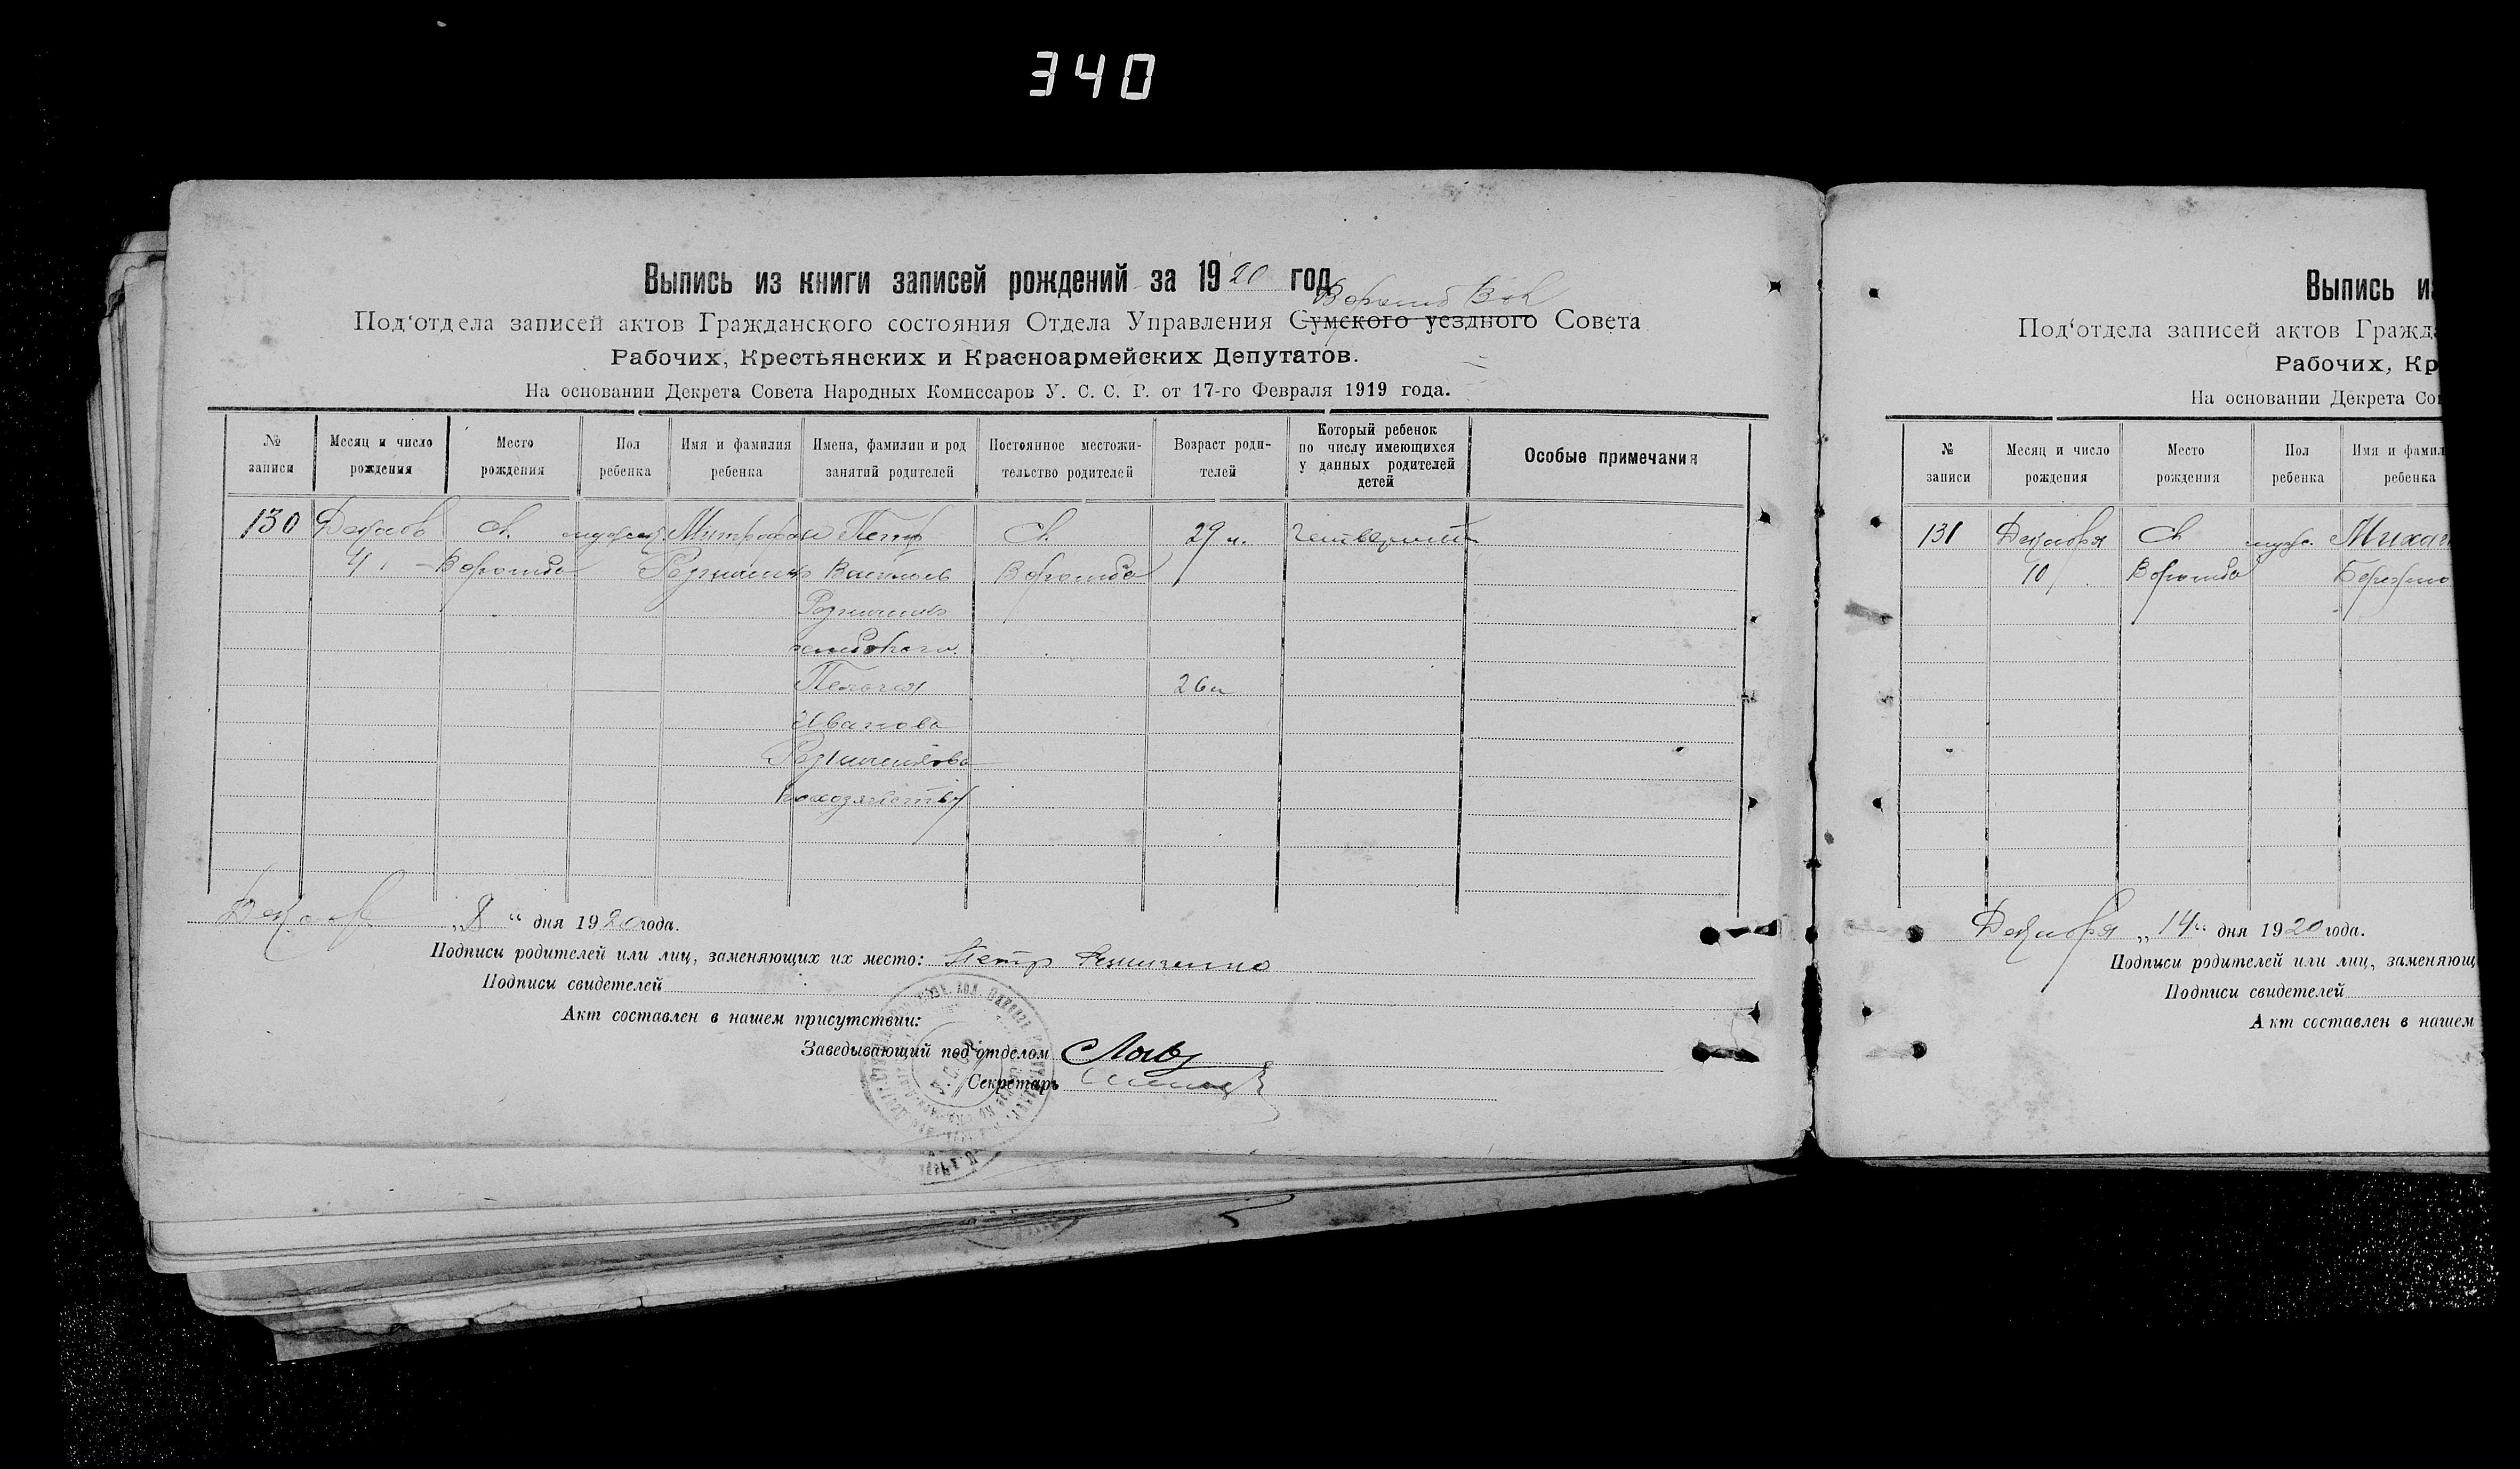 340
Выпись из книги записей рождений за 1920 год
Под'отдела записей актов Гражданского состояния Отдела Управления Сумского уездного Совета
Рабочих, Крестьянских и Красноармейских Депутатов.
На основании Декрета Совета Народных Комиссаров У. С. С. Р. от 17-го Февраля 1919 года.
№ записи
Месяц и число рождения
Место рождения
Пол ребенка
Имя и фамилия ребенка
Имена, фамилии и род занятий родителей
Постоянное местожительство родителей
Возраст родителей
Который ребенок по числу имеющихся у данных родителей детей
Особые примечания
130 Декаб с. Митрофан Петр с. 29 л. четвертый
4 Ворожба Василов Ворожба
Пелагея 26 л
Иванова
Декаб „8“ дня 1920 года.
Подписи родителей или лиц, заменяющих их место: Петр Резниченко
Подписи свидетелей
Акт составлен в нашем присутствии:
Заведывающий под'отделом
Секретарь
Выпись из
Под'отдела записей актов Гражда
Рабочих, Кр
На основании Декрета Сов
№ записи
Месяц и число рождения
Место рождения
Пол ребенка
Имя и фамил
ребенка
131 Декабря с. мужс. Михаи
10 Ворожба
Декабря „14“ дня 1920 года.
Подписи родителей или лиц, заменяющ
Подписи свидетелей
Акт составлен в нашем